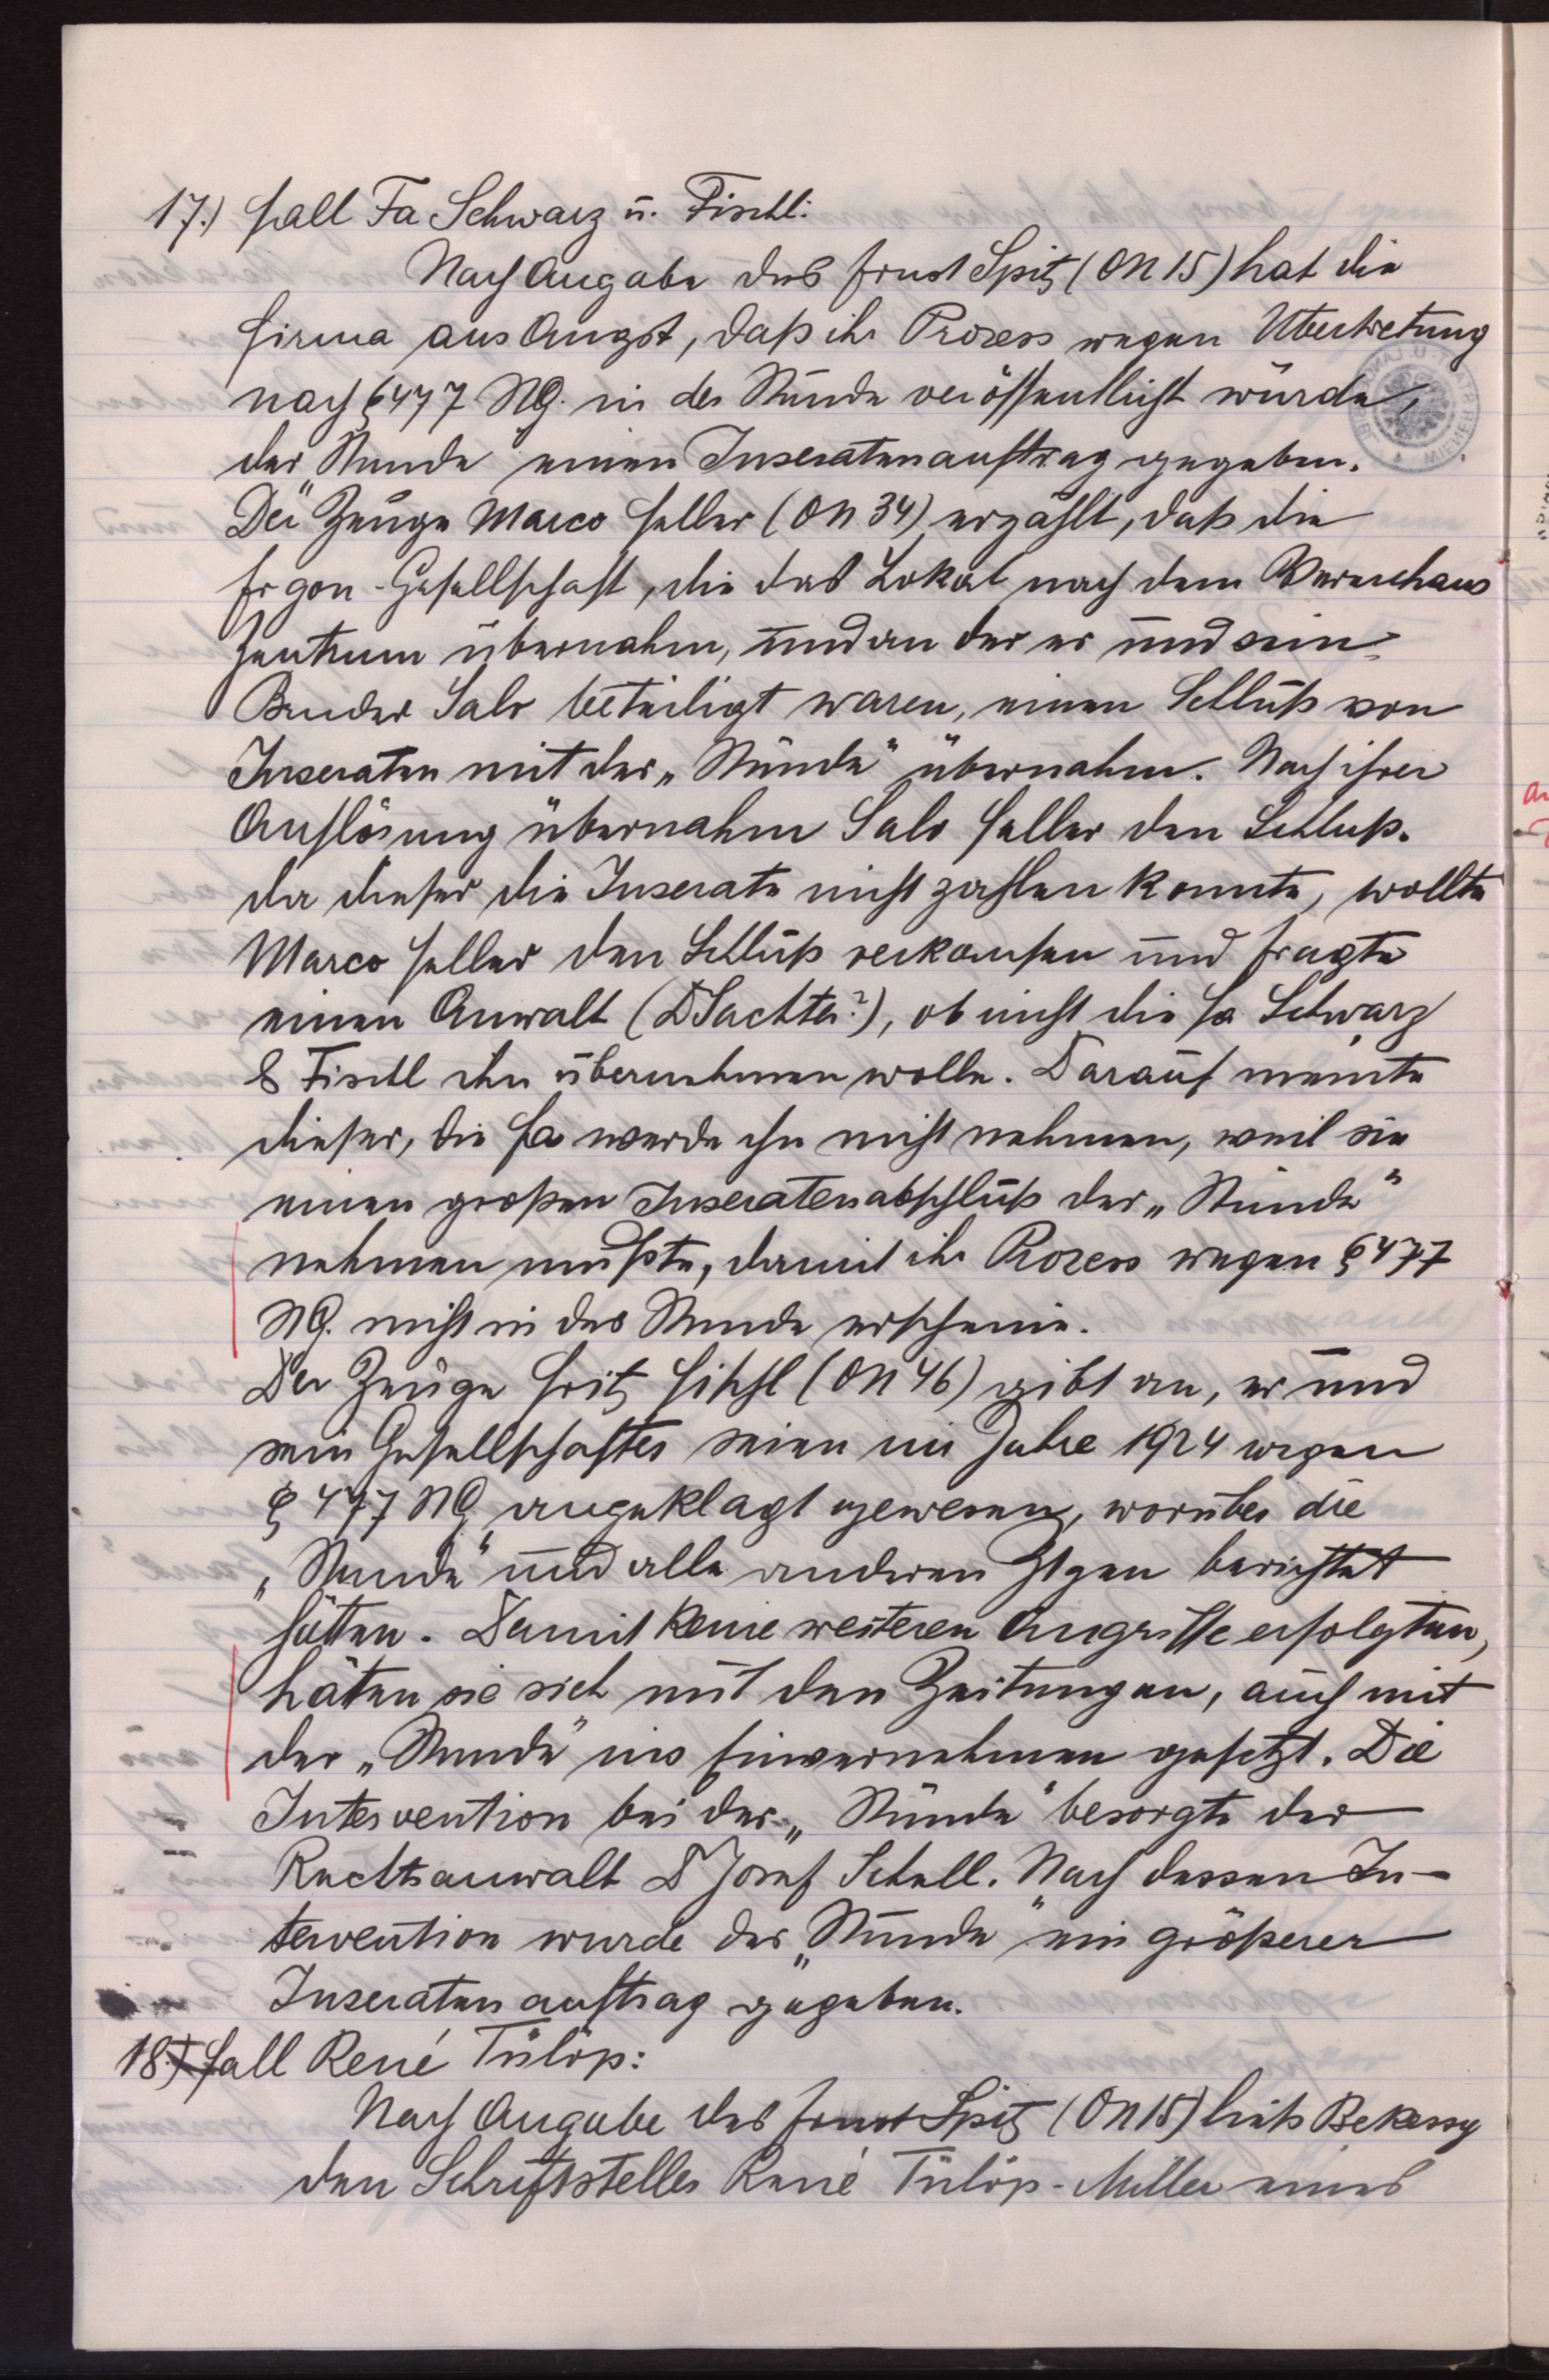 17.) Fall Fa Schwarz u. Fischl:
Nach Angabe des Ernst Spitz (ON 15) hat die
Firma aus Angst, daß ihr Prozess wegen Übertretung
nach § 477 StG. in der Stunde veröffentlicht würde,
der „Stunde" einen Inseratenauftrag gegeben.
Der Zeuge Marco Heller (ON 34) erzählt, daß die
Ergon-Gesellschaft, die das Lokal nach dem Warenhaus
Zentrum übernahm, und an der er und sein
Bruder Salo beteiligt waren, einen Schluß von
Inseraten mit der „Stunde" übernahm. Nach ihrer
Auflösung übernahm Salo Heller den Schluß.
da dieser die Inserate nicht zahlen konnte, wollte
Marco Heller den Schluß verkaufen und fragte
einen Anwalt (D Sachter?), ob nicht die Fa Schwarz
& Fischl ihn übernehmen wolle. Darauf meinte
dieser, die Fa werde ihn nicht nehmen, weil sie
einen großen Inseratenabschluß der „Stunde"
nehmen mußte, damit ihr Prozess wegen § 477
StG. nicht in der Stunde erscheine.
Der Zeuge Fritz Fischl (ON 46) gibt an, er und
sein Gesellschafter seien im Jahre 1924 wegen
§ 477 StG angeklagt gewesen, worüber die
„Stunde" und alle anderen Ztgen berichtet
hätten. Damit keine weiteren Angriffe erfolgten,
häten sie sich mit den Zeitungen, auch mit
der „Stunde" ins Einvernehmen gesetzt. Die
Intervention bei der „Stunde" besorgte der
Rechtsanwalt D Josef Schell. Nach dessen In-
tervention wurde der „Stunde" ein größerer
Inseratenauftrag gegeben.
18.) Fall René Fülöp:
Nach Angabe des Ernst Spitz (ON 15) ließ Bekessy
den Schriftsteller René Fülöp-Miller eines